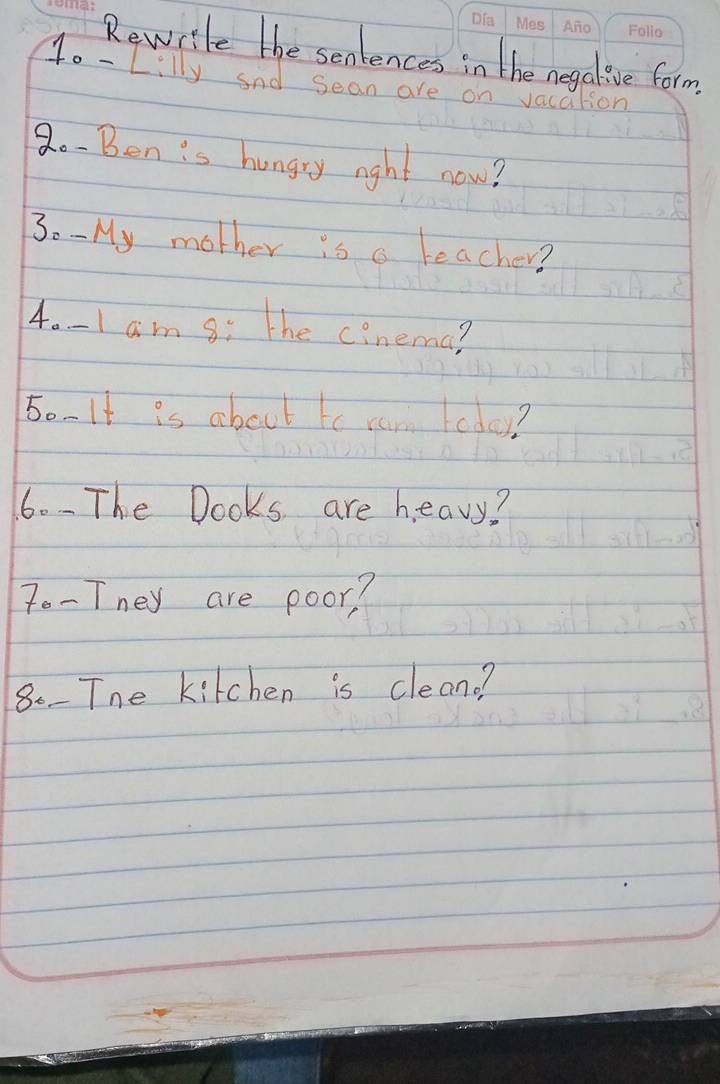 Tema:
Día Mes Año Folio
Rewrite the sentences in the negative form.
1.- Lilly snd Sean are on vacation
2.- Ben is hungry nght now?
3.- My mother is a teacher?
4.- I am 8: the cinema?
5.- It is about tc ram today?
6.- The Dooks are heavy?
7.- Tney are poor?
8.- Tne kitchen is clean?